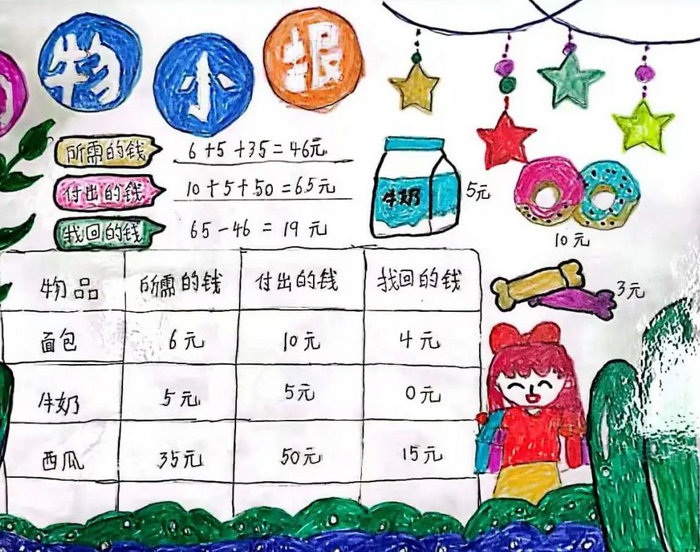 物小报
所需的钱 6+5+35=46元
付出的钱 10+5+50=65元
找回的钱 65-46=19元
牛奶 5元
10元
3元
物品 所需的钱 付出的钱 找回的钱
面包 6元 10元 4元
牛奶 5元 5元 0元
西瓜 35元 50元 15元